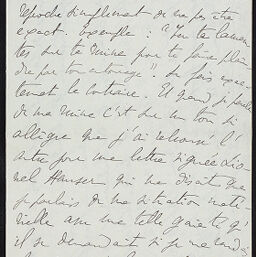 reproche simplement de ne pas être
exact. Exemple : "Tu te lamen
tes sur ta ruine pour te faire plain
dre par ton entourage". Je fais exac-
tement le contraire. Et quand je parle
de ma ruine c'est sur un ton si
allègre que j'ai retrouvé l'
autre jour une lettre signée Lio
nel Hauser qui me disait que
je parlais de ma situation maté-
rielle avec une telle gaieté qu'
il se demandait si je me rendais